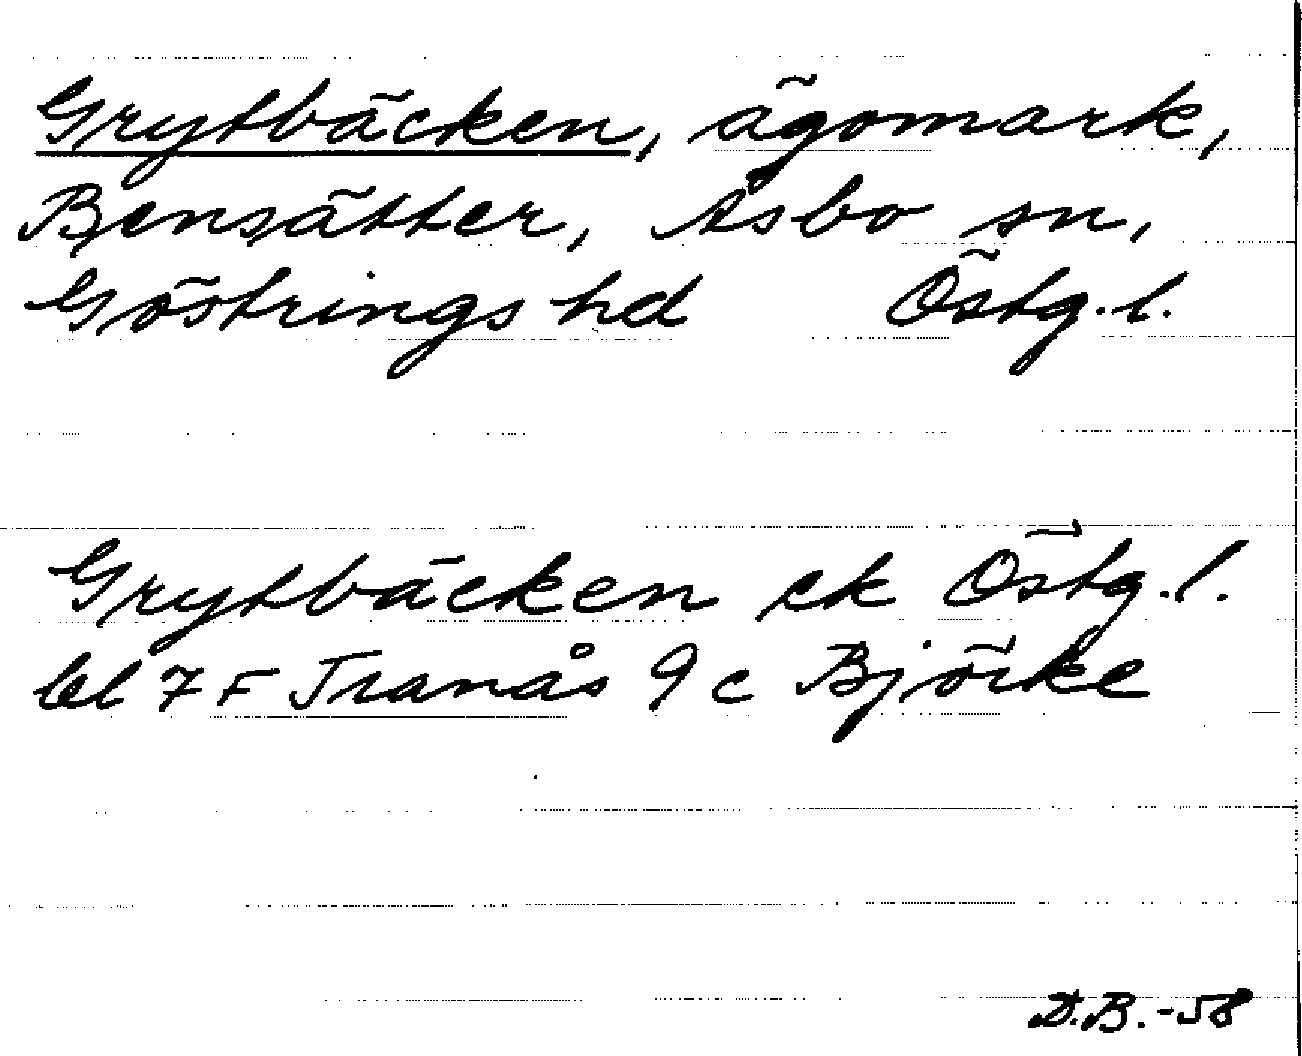 Grytbäcken, ägomark,
Bensätter, Åsbo sn,
Göstrings hd Östg.l.
Grytbäcken ek Östg.l.
bl 7 F Tranås 9 c Björke
D.B.-58